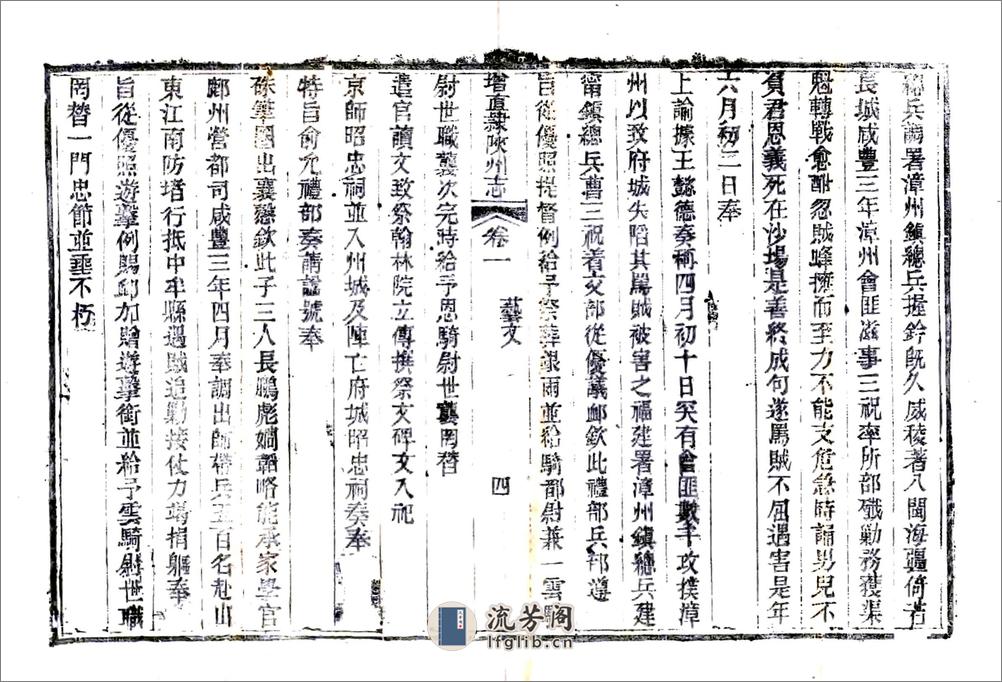 總兵調署漳州鎮總兵握鈐既久威稜著八閩海疆倚若
長城咸豐三年漳州會匪滋事三祝率所部殲勦務獲渠
魁轉戰愈酣忽賊蜂擁而至力不能支危急時誦男兒不
負君恩義死在沙場是善終成句遂罵賊不屈遇害是年
六月初三日奉
上諭據王懿德奏稱四月初十日突有會匪數千攻撲漳
州以致府城失陷其罵賊被害之福建署漳州鎮總兵建
甯鎮總兵曹三祝著交部從優議卹欽此禮部兵部遵
旨從優照提督例給予祭葬銀兩並給騎都尉兼一雲騎
增直隸陝州志 卷一 藝文 四
尉世職襲次完時給予恩騎尉世襲罔替
遣官讀文致祭翰林院立傳撰祭文碑文入祀
京師昭忠祠並入州城及陣亡府城昭忠祠奏奉
特旨俞允禮部奏請諡號奉
硃筆圈出襄愍欽此子三人長鵬彪嫺韜略能承家學官
鄜州營都司咸豐三年四月奉調出師帶兵五百名赴山
東江南防堵行抵中牟縣遇賊追勦接仗力竭捐軀奉
旨從優照遊擊例賜卹加贈遊擊銜並給予雲騎尉世職
罔替一門忠節並垂不朽
流芳阁
lfglib.cn